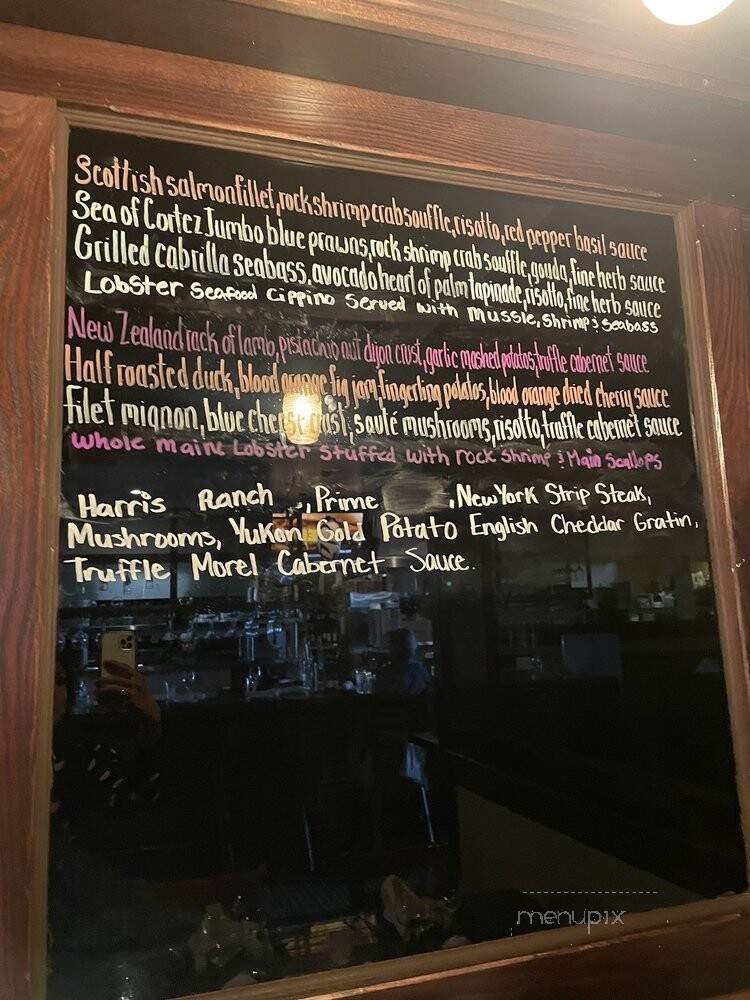 Scottish salmon fillet, rock shrimp crab souffle, risotto, red pepper basil sauce
Sea of Cortez Jumbo blue prawns, rock shrimp crab souffle, gouda, fine herb sauce
Grilled cabrilla seabass, avocado heart of palm tapinade, risotto, fine herb sauce
Lobster Seafood Cippino Served with Mussle, Shrimp & Seabass
New Zealand rack of lamb, pistachio nut dijon crust, garlic mashed potatos, truffle cabernet sauce
Half roasted duck, blood orange fig jam, fingerling potatos, blood orange dried cherry sauce
filet mignon, blue cheese crust, sauté mushrooms, risotto, truffle cabernet sauce
Whole Maine Lobster Stuffed with rock Shrimp & Main Scallops
Harris Ranch , Prime , New York Strip Steak,
Mushrooms, Yukon Gold Potato English Cheddar Gratin,
Truffle Morel Cabernet Sauce.
menupix